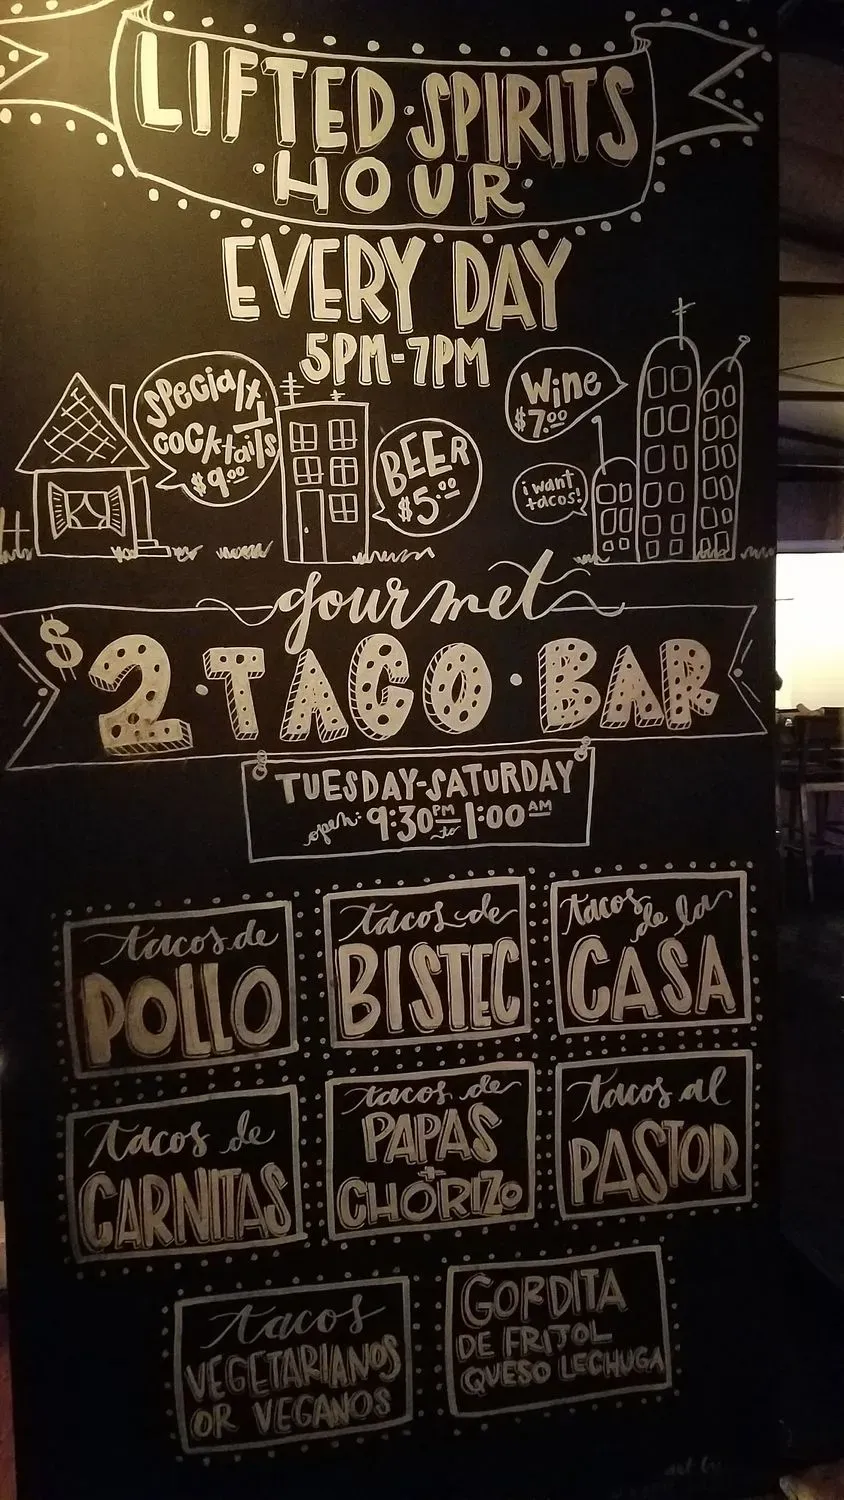 LIFTED·SPIRITS
·HOUR·
EVERY DAY
5PM-7PM
Specialty
cocktails
$9.00
BEER
$5.00
Wine
$7.00
i want
tacos!
gourmet
$2·TACO·BAR
TUESDAY-SATURDAY
open: 9:30PM to 1:00AM
tacos de
POLLO
tacos de
BISTEC
tacos de la
CASA
tacos de
CARNITAS
tacos de
PAPAS
+
CHORIZO
tacos al
PASTOR
tacos
VEGETARIANOS
OR VEGANOS
GORDITA
DE FRIJOL
QUESO LECHUGA